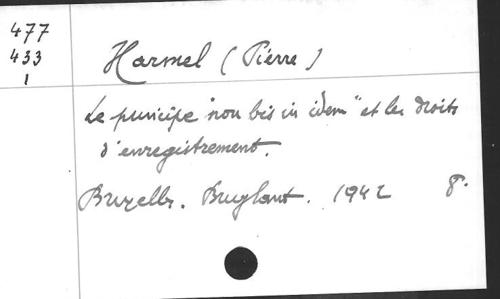 477
433
1
Harmel (Pierre)
Le principe "non bis in idem" et les droits
d'enregistrement.
Bruxelles. Bruylant. 1942 8°.